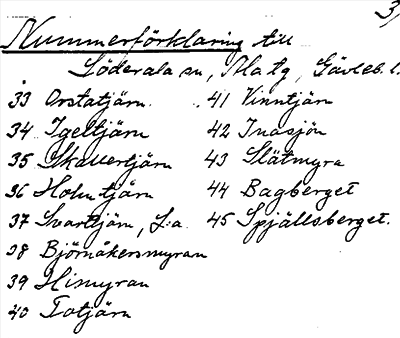 3,
Nummerförklaring till
Söderala sn, Ala tg, Gävleb. l.
33 Orstatjärn. 41 Vinntjärn
34 Igeltjärn 42 Inasjön
35 Skavertjärn 43 Slåtmyra
36 Holmtjärn 44 Bagberget
37 Svarttjärn, L:a 45 Spjällsberget.
38 Björnåkersmyran
39 Himyran
40 Totjärn